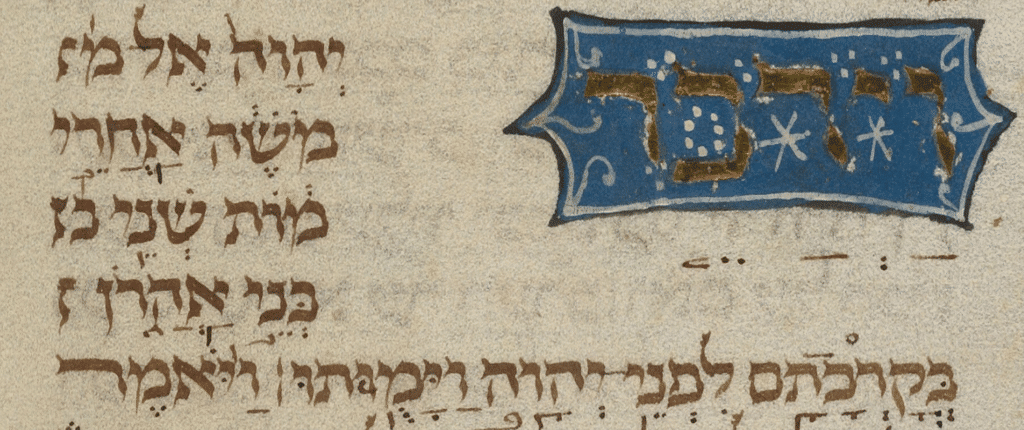 וידבר
יְהוָה אֶל מ
מֹשֶׁה אַחֲרֵי
מוֹת שְׁנֵי ב
בְּנֵי אַהֲרֹן
בְּקָרְבָתָם לִפְנֵי יְהוָה וַיָּמוּתוּ׃ וַיֹּאמֶר